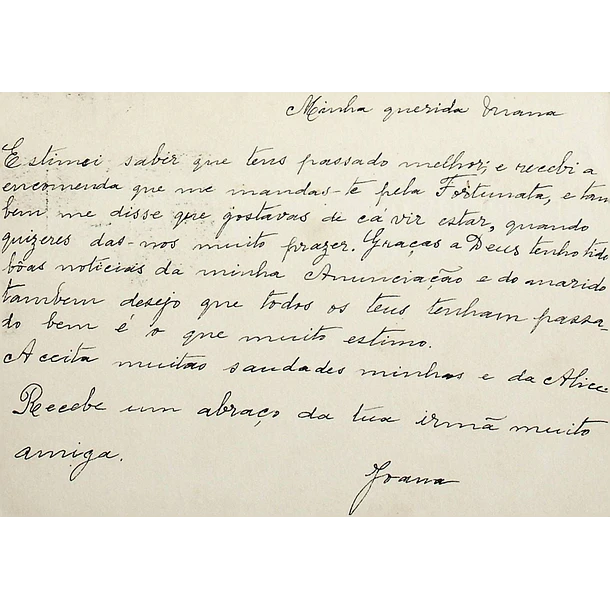 Minha querida Mana
Estimei saber que tens passado melhor; e recebi a
encomenda que me mandas-te pela Fortunata, e tam
bem me disse que gostavas de cá vir estar, quando
quizeres das-nos muito prazer. Graças a Deus tenho tido
bôas notícias da minha Anunciação e do marido
tambem desejo que todos os teus tenham passa-
do bem é o que muito estimo.
Aceita muitas saudades minhas e da Alice
Recebe um abraço da tua irmã muito
amiga.
Joana